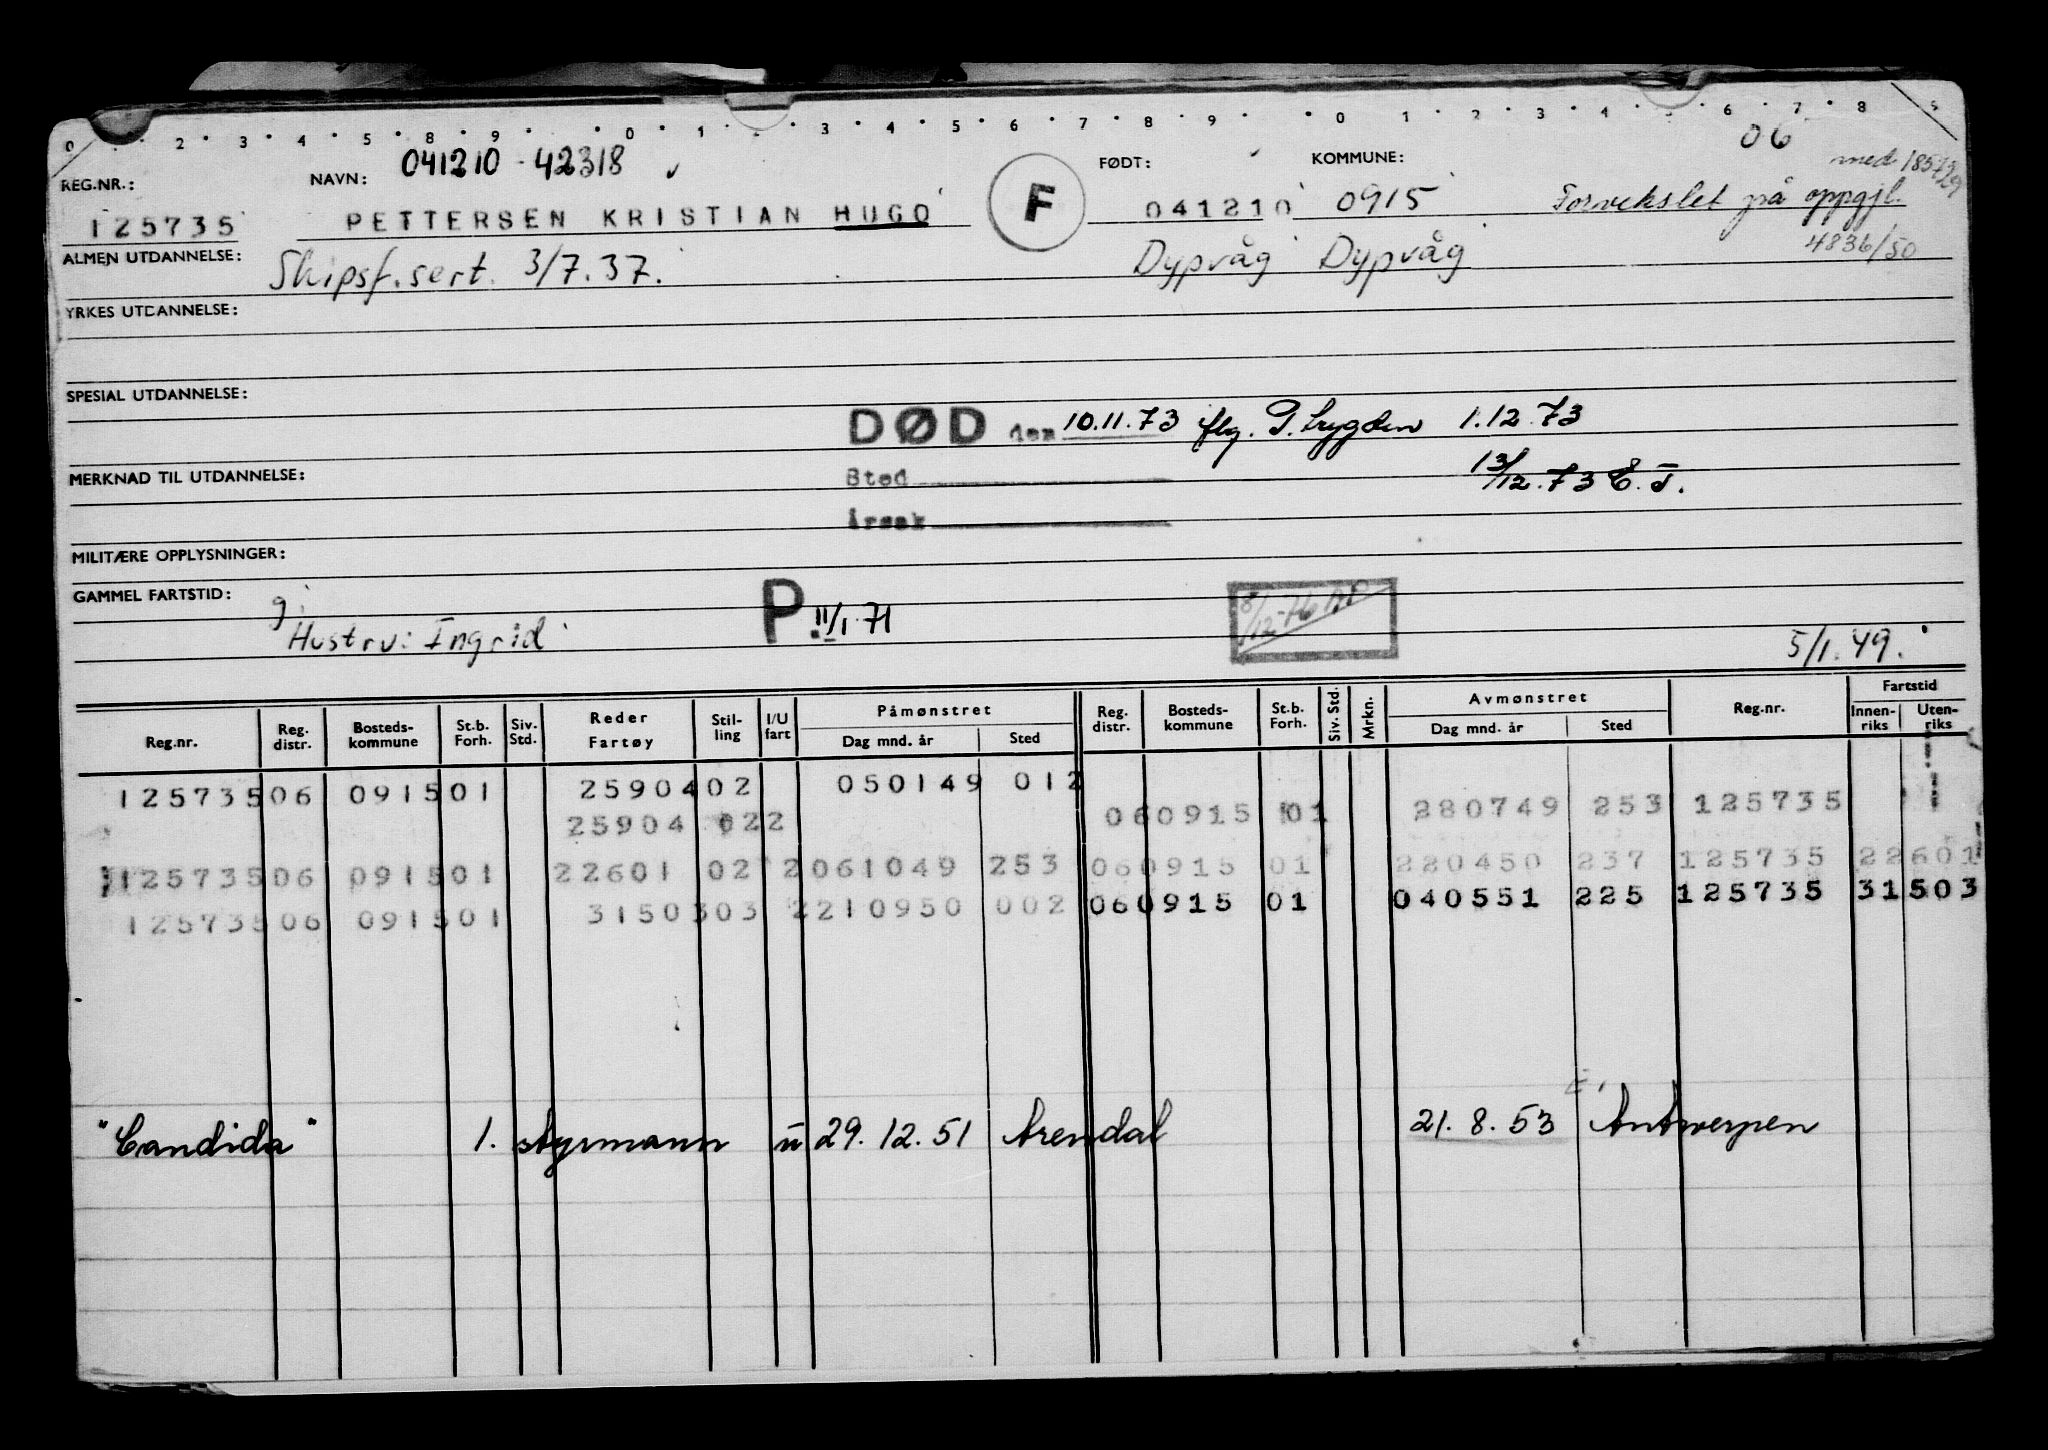 0 2 3 4 5 8 9 0 1 3 4 5 6 7 8 9 0 1 2 3 4 6 7 8
06
REG.NR.: NAVN: 041210 - 42318 F FØDT: KOMMUNE: med 185729
125735 PETTERSEN KRISTIAN HUGO 041210 0915 Forvekslet på oppgjl.
ALMEN UTDANNELSE: Skipsf.sert. 3/7.37. Dypvåg Dypvåg 4836/50
YRKES UTDANNELSE:
SPESIAL UTDANNELSE:
DØD den 10.11.73 flg. P.trygden 1.12.73
MERKNAD TIL UTDANNELSE: Sted 13/12.73 E.T.
Årsak
MILITÆRE OPPLYSNINGER:
GAMMEL FARTSTID: g. P. 11/1.71 8/12-76
Hustru: Ingrid 5/1.49.
Reg.nr. Reg. distr. Bosteds-kommune St.b. Forh. Siv. Std. Reder Fartøy Stil-ling I/U fart Påmønstret Dag mnd. år Sted Reg. distr. Bosteds-kommune St.b. Forh. Siv. Std. Mrkn. Avmønstret Dag mnd. år Sted Reg.nr. Fartstid Innen-riks Uten-riks
125735 06 0915 01 25904 02 050149 012
25904 02 2 06 0915 01 280749 253 125735
125735 06 0915 01 22601 02 2 061049 253 06 0915 01 220450 237 125735 22601
125735 06 0915 01 31503 03 2 210950 002 06 0915 01 040551 225 125735 31503
"Candida" 1. styrmann u 29.12.51 Arendal 21.8.53 Antwerpen